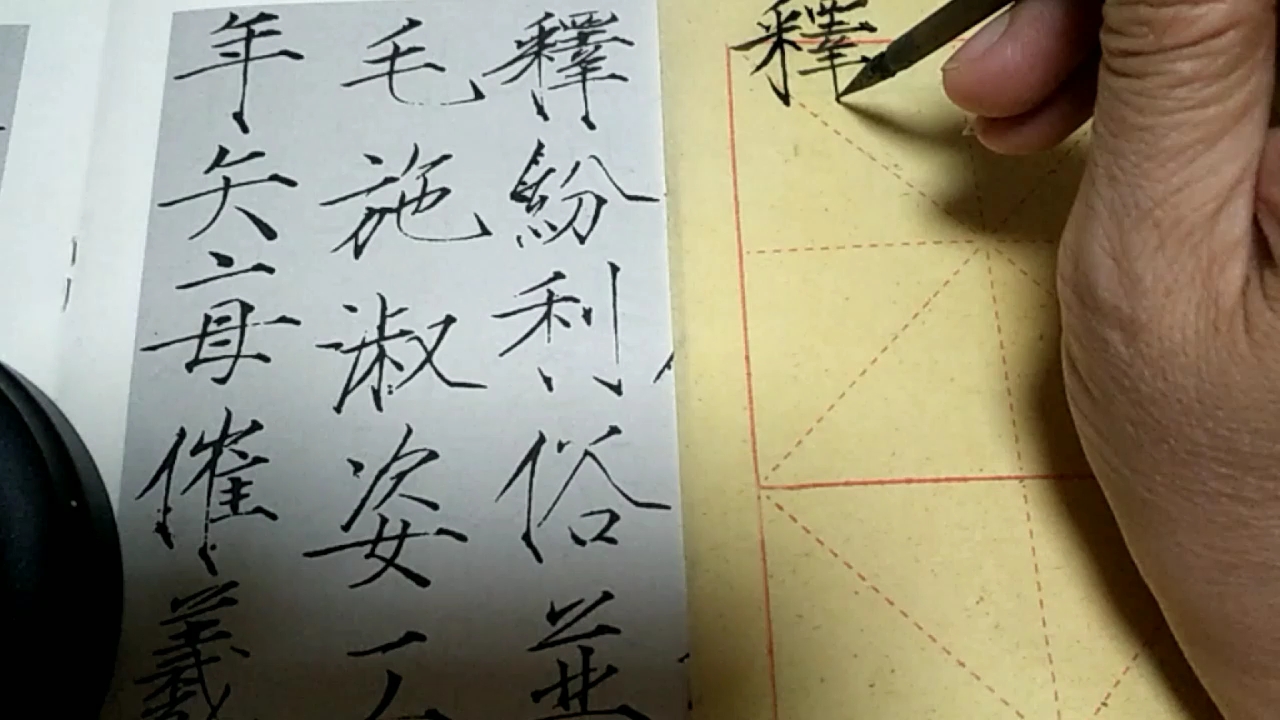 釋紛利俗並
毛施淑姿
年矢每催羲
釋